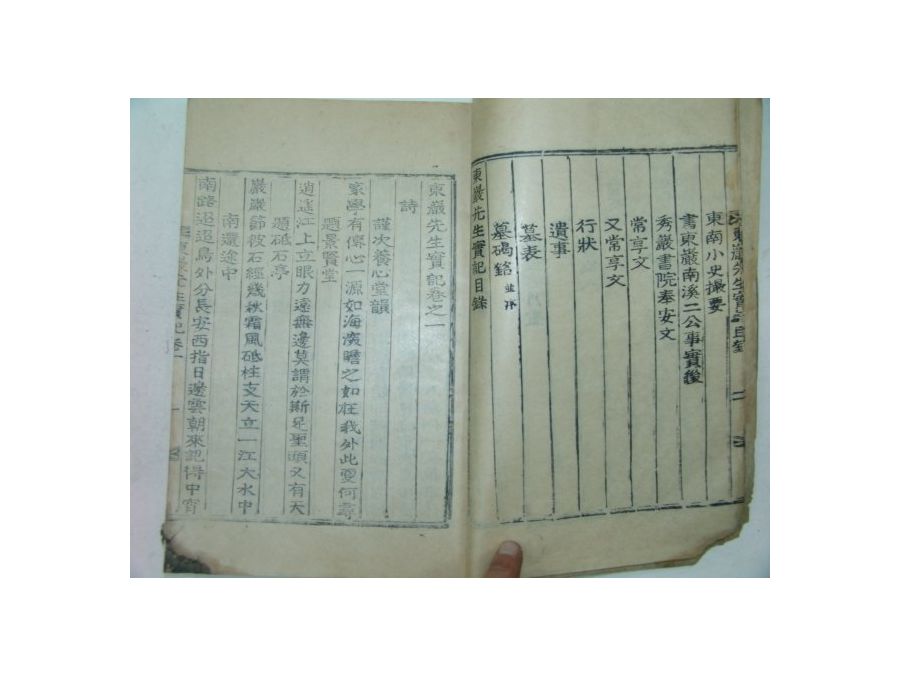 東巖先生實記目錄 二
東南小史撮要
書東巖南溪二公事實後
秀巖書院奉安文
常享文
又常享文
行狀
遺事
墓表
墓碣銘 並序
東巖先生實記目錄
東巖先生實記卷之一
詩
謹次養心堂韻
家學有傳心一源如海廣瞻之如在我外此更何尋
題景賢堂
逍遙江上立眼力遠無邊莫謂於斯足聖頭又有天
題砥石亭
巖巖節彼石經幾秋霜風砥柱支天立一江大水中
南還途中
南路迢迢鳥外分長安西指日邊雲朝來記得中宵
東巖先生實記卷一 一